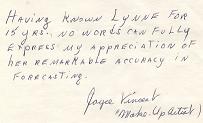 HAVING KNOWN LYNNE FOR
15 YRS. NO WORDS CAN FULLY
EXPRESS MY APPRECIATION OF
HER REMARKABLE ACCURACY IN
FORECASTING.
Joyce Vincent
"Make-Up Artist)